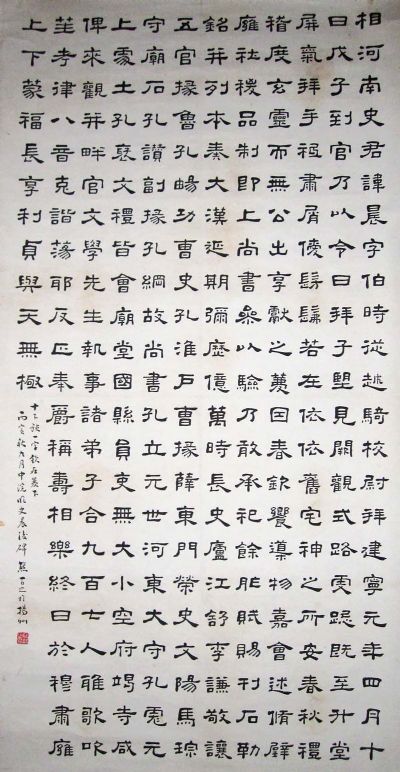 相河南史君諱晨字伯時從越騎校尉拜建寧元年四月十
日戊子到官乃以令日拜子望見闕觀式路虔跽既至升堂
屏氣拜手祗肅屑僾髣髴若在依依舊宅神之所安春秋禮
稽度玄靈而無公出享獻之薦因春欽饗導物嘉會述脩璧
廱社稷品制即上尚書參以驗乃敢承祀餘胙賦賜刊石勒
銘并列本奏大漢延期彌歷億萬時長史廬江舒李謙敬讓
五官掾魯孔暘功曹史孔淮戶曹掾薛東門榮史文陽馬琮
守廟石孔讚副掾孔綱故尚書孔立元世河東大守孔彪元
上處土孔褒文禮皆會廟堂國縣員吏無大小空府竭寺咸
俾來觀并畔官文學先生執事諸弟子合九百七人雅歌吹
笙考律八音克諧蕩耶反正奉爵稱壽相樂終日於穆肅廱
上下蒙福長享利貞與天無極
十下一字欽在薦下
丙寅秋九月中浣臨史晨後碑於揚州